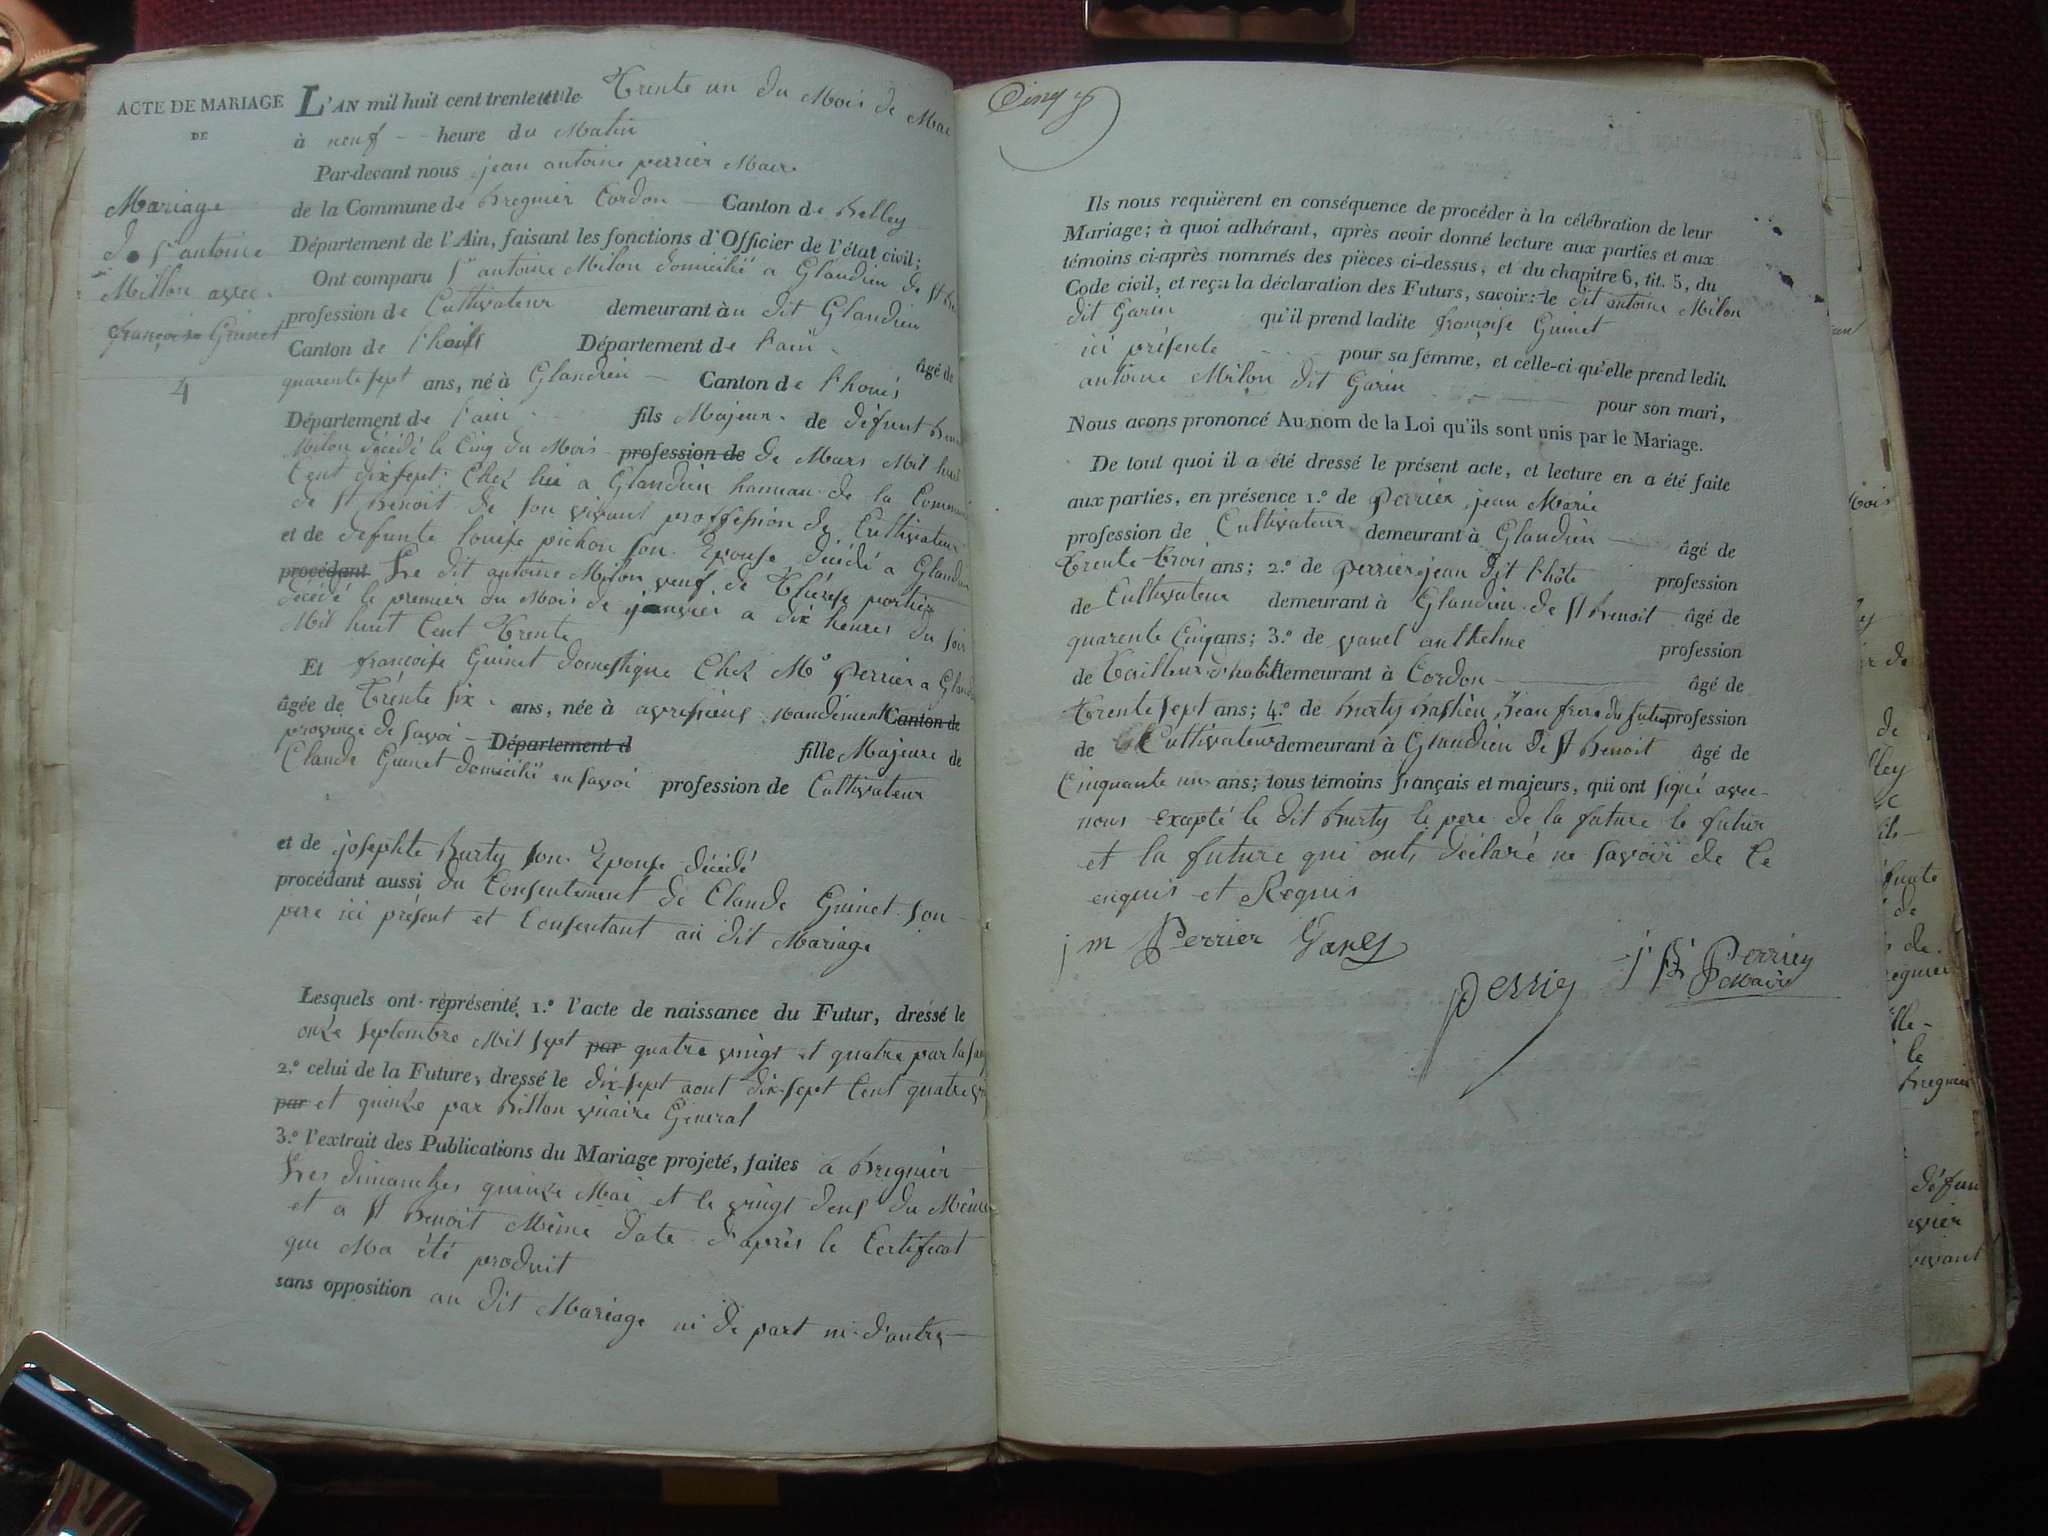 ACTE DE MARIAGE
DE
Mariage
de Sr antoine
Millon avec
françoise Guinet
4
L'AN mil huit cent trente et un le Trente un du Mois de Mai
à neuf -- heure du Matin
Par-devant nous jean antoine perrier Maire
de la Commune de Bregnier Cordon — Canton de Belley
Département de l'Ain, faisant les fonctions d'Officier de l'état civil;
Ont comparu Sr antoine Milon domicilié a Glandieu de St
profession de Cultivateur demeurant au dit Glandieu
Canton de l'huis Département de l'ain
âgé de
quarente sept ans, né à Glandieu — Canton de l'houis
Département de l'ain fils Majeur de défunt
Milon décédé le Cinq du Mois profession de de Mars Mil huit
Cent dix sept Chez lui a Glandieu hameau de la Commune
de St Benoit de son vivant proffession de Cultivateur
et de defunte louise pichon son Epouse décédé a Glandieu
procédant Le dit antoine Milon veuf de Thérese portier
décédé le premier du Mois de janvier a dix heures du soir
Mil huit Cent Trente
Et françoise Guinet domestique Chez Mr perrier a
âgée de Trénte six ans, née à avressieux Mandement Canton de
province de Savoi — Département d fille Majeure de
Claude Guinet domicilié en Savoi profession de Cultivateur
et de josephte Burty son Epouse décédé
procédant aussi du Consentement de Claude Guinet son
pere ici présent et Consentant au dit Mariage
Lesquels ont représenté 1.º l'acte de naissance du Futur, dressé le
onze Septembre Mil sept par quatre vingt et quatre par
2.º celui de la Future, dressé le dix-sept aout dix-sept Cent quatre
par et quinze par Billon vicaire Géneral
3.º l'extrait des Publications du Mariage projeté, faites a Bregnier
Les dimanches quinze Mai et le vingt deux du Même
et a St Benoit Même date d'après le Certificat
que Ma été produit
sans opposition au dit Mariage ni de part ni d'autre
Ils nous requièrent en conséquence de procéder à la célébration de leur
Mariage; à quoi adhérant, après avoir donné lecture aux parties et aux
témoins ci-après nommés des pièces ci-dessus, et du chapitre 6, tit. 5, du
Code civil, et reçu la déclaration des Futurs, savoir: le dit antoine Milon
dit Garin qu'il prend ladite françoise Guinet
ici présente pour sa femme, et celle-ci qu'elle prend ledit
antoine Milon dit Garin pour son mari,
Nous avons prononcé Au nom de la Loi qu'ils sont unis par le Mariage.
De tout quoi il a été dressé le présent acte, et lecture en a été faite
aux parties, en présence 1.º de perrier jean Marie
profession de Cultivateur demeurant à Glandieu — âgé de
Trente-Trois ans; 2.º de perrier jean dit l'hôte profession
de Cultivateur demeurant à Glandieu de St Benoit âgé de
quarente Cinq ans; 3.º de vanel anthelme profession
de Tailleur d'habit demeurant à Cordon — âgé de
Trente sept ans; 4.º de Burty Bastien Beau frere du futur profession
de Cultivateur demeurant à Glandieu de St Benoit âgé de
Cinquante un ans; tous témoins français et majeurs, qui ont signé avec
nous excepté le dit Burty le pere de la future le futur
et la future qui ont déclaré ne savoir de Ce
enquis et Requis
j m Perrier
perrier
Perrier
Maire